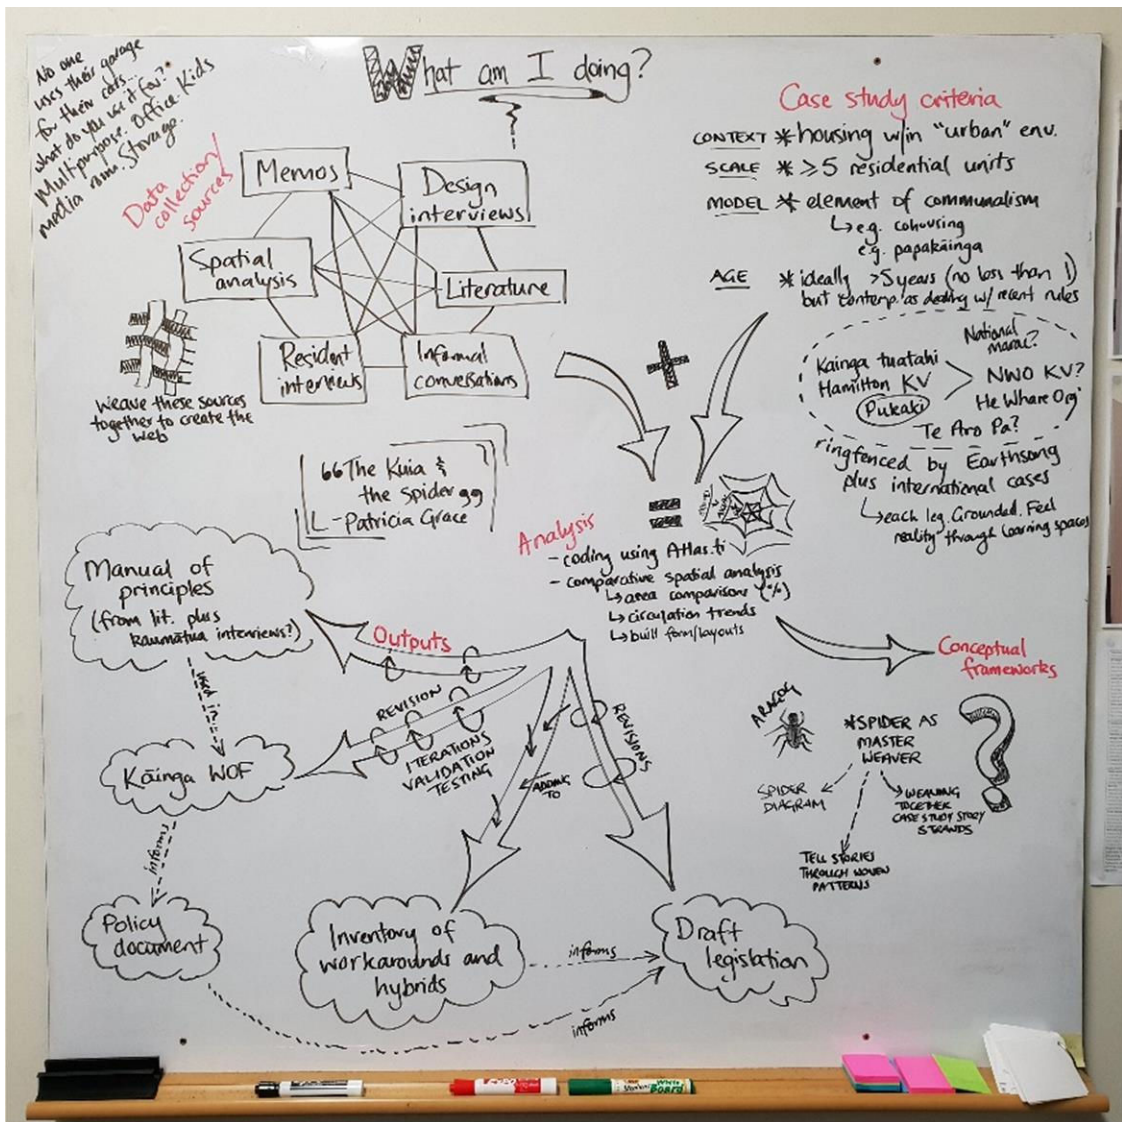 What am I doing?
No one
uses their garage
for their cars...
what do you use it for?
Multipurpose. Office. Kids
media room. Storage.
Data
collection/
sources
Memos
Design
interviews
Spatial
analysis
Literature
Resident
interviews
Informal
conversations
Weave these sources
together to create the
web
Case study criteria
CONTEXT * housing w/in "urban" env.
SCALE * ≥5 residential units
MODEL * element of communalism
↳ e.g. cohousing
e.g. papakāinga
AGE * ideally >5 years (no less than 1)
but contemp. as dealing w/ recent rules
+
National
marae?
Kainga tuatahi
Hamilton KV
Pukaki
NWO KV?
He Whare Ora
Te Aro Pa?
ringfenced by Earthsong
plus international cases
↳ each leg. Grounded. Feel
reality through learning spaces
66 The Kuia &
the Spider 99
- Patricia Grace
=
Analysis
- coding using Atlas.ti
- comparative spatial analysis
↳ area comparisons (%)
↳ circulation trends
↳ built form/layouts
Manual of
principles
(from lit. plus
kaumātua interviews?)
Outputs
REVISION
ITERATIONS
VALIDATION
TESTING
REVISIONS
ADDING
TO
Kāinga WOF
informs
Policy
document
Inventory of
workarounds and
hybrids
informs
Draft
legislation
informs
Conceptual
frameworks
ARAGOG
*SPIDER AS
MASTER
WEAVER
?
SPIDER
DIAGRAM
WEAVING
TOGETHER
CASE STUDY STORY
STRANDS
TELL STORIES
THROUGH WOVEN
PATTERNS